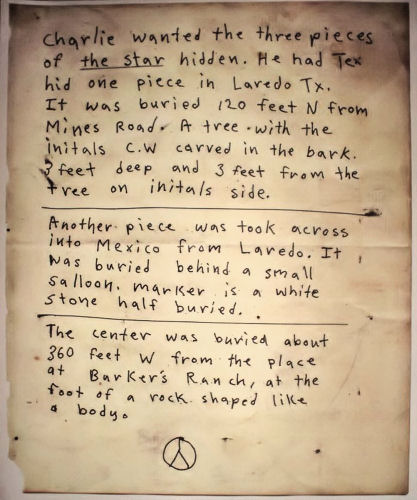 Charlie wanted the three pieces
of the star hidden. He had Tex
hid one piece in Laredo Tx.
It was buried 120 feet N from
Mines Road. A tree with the
initals C.W carved in the bark.
3 feet deep and 3 feet from the
tree on initals side.
Another piece was took across
into Mexico from Laredo. It
was buried behind a small
salloon. marker is a white
stone half buried.
The center was buried about
360 feet W from the place
at Barker's Ranch, at the
foot of a rock shaped like
a body.